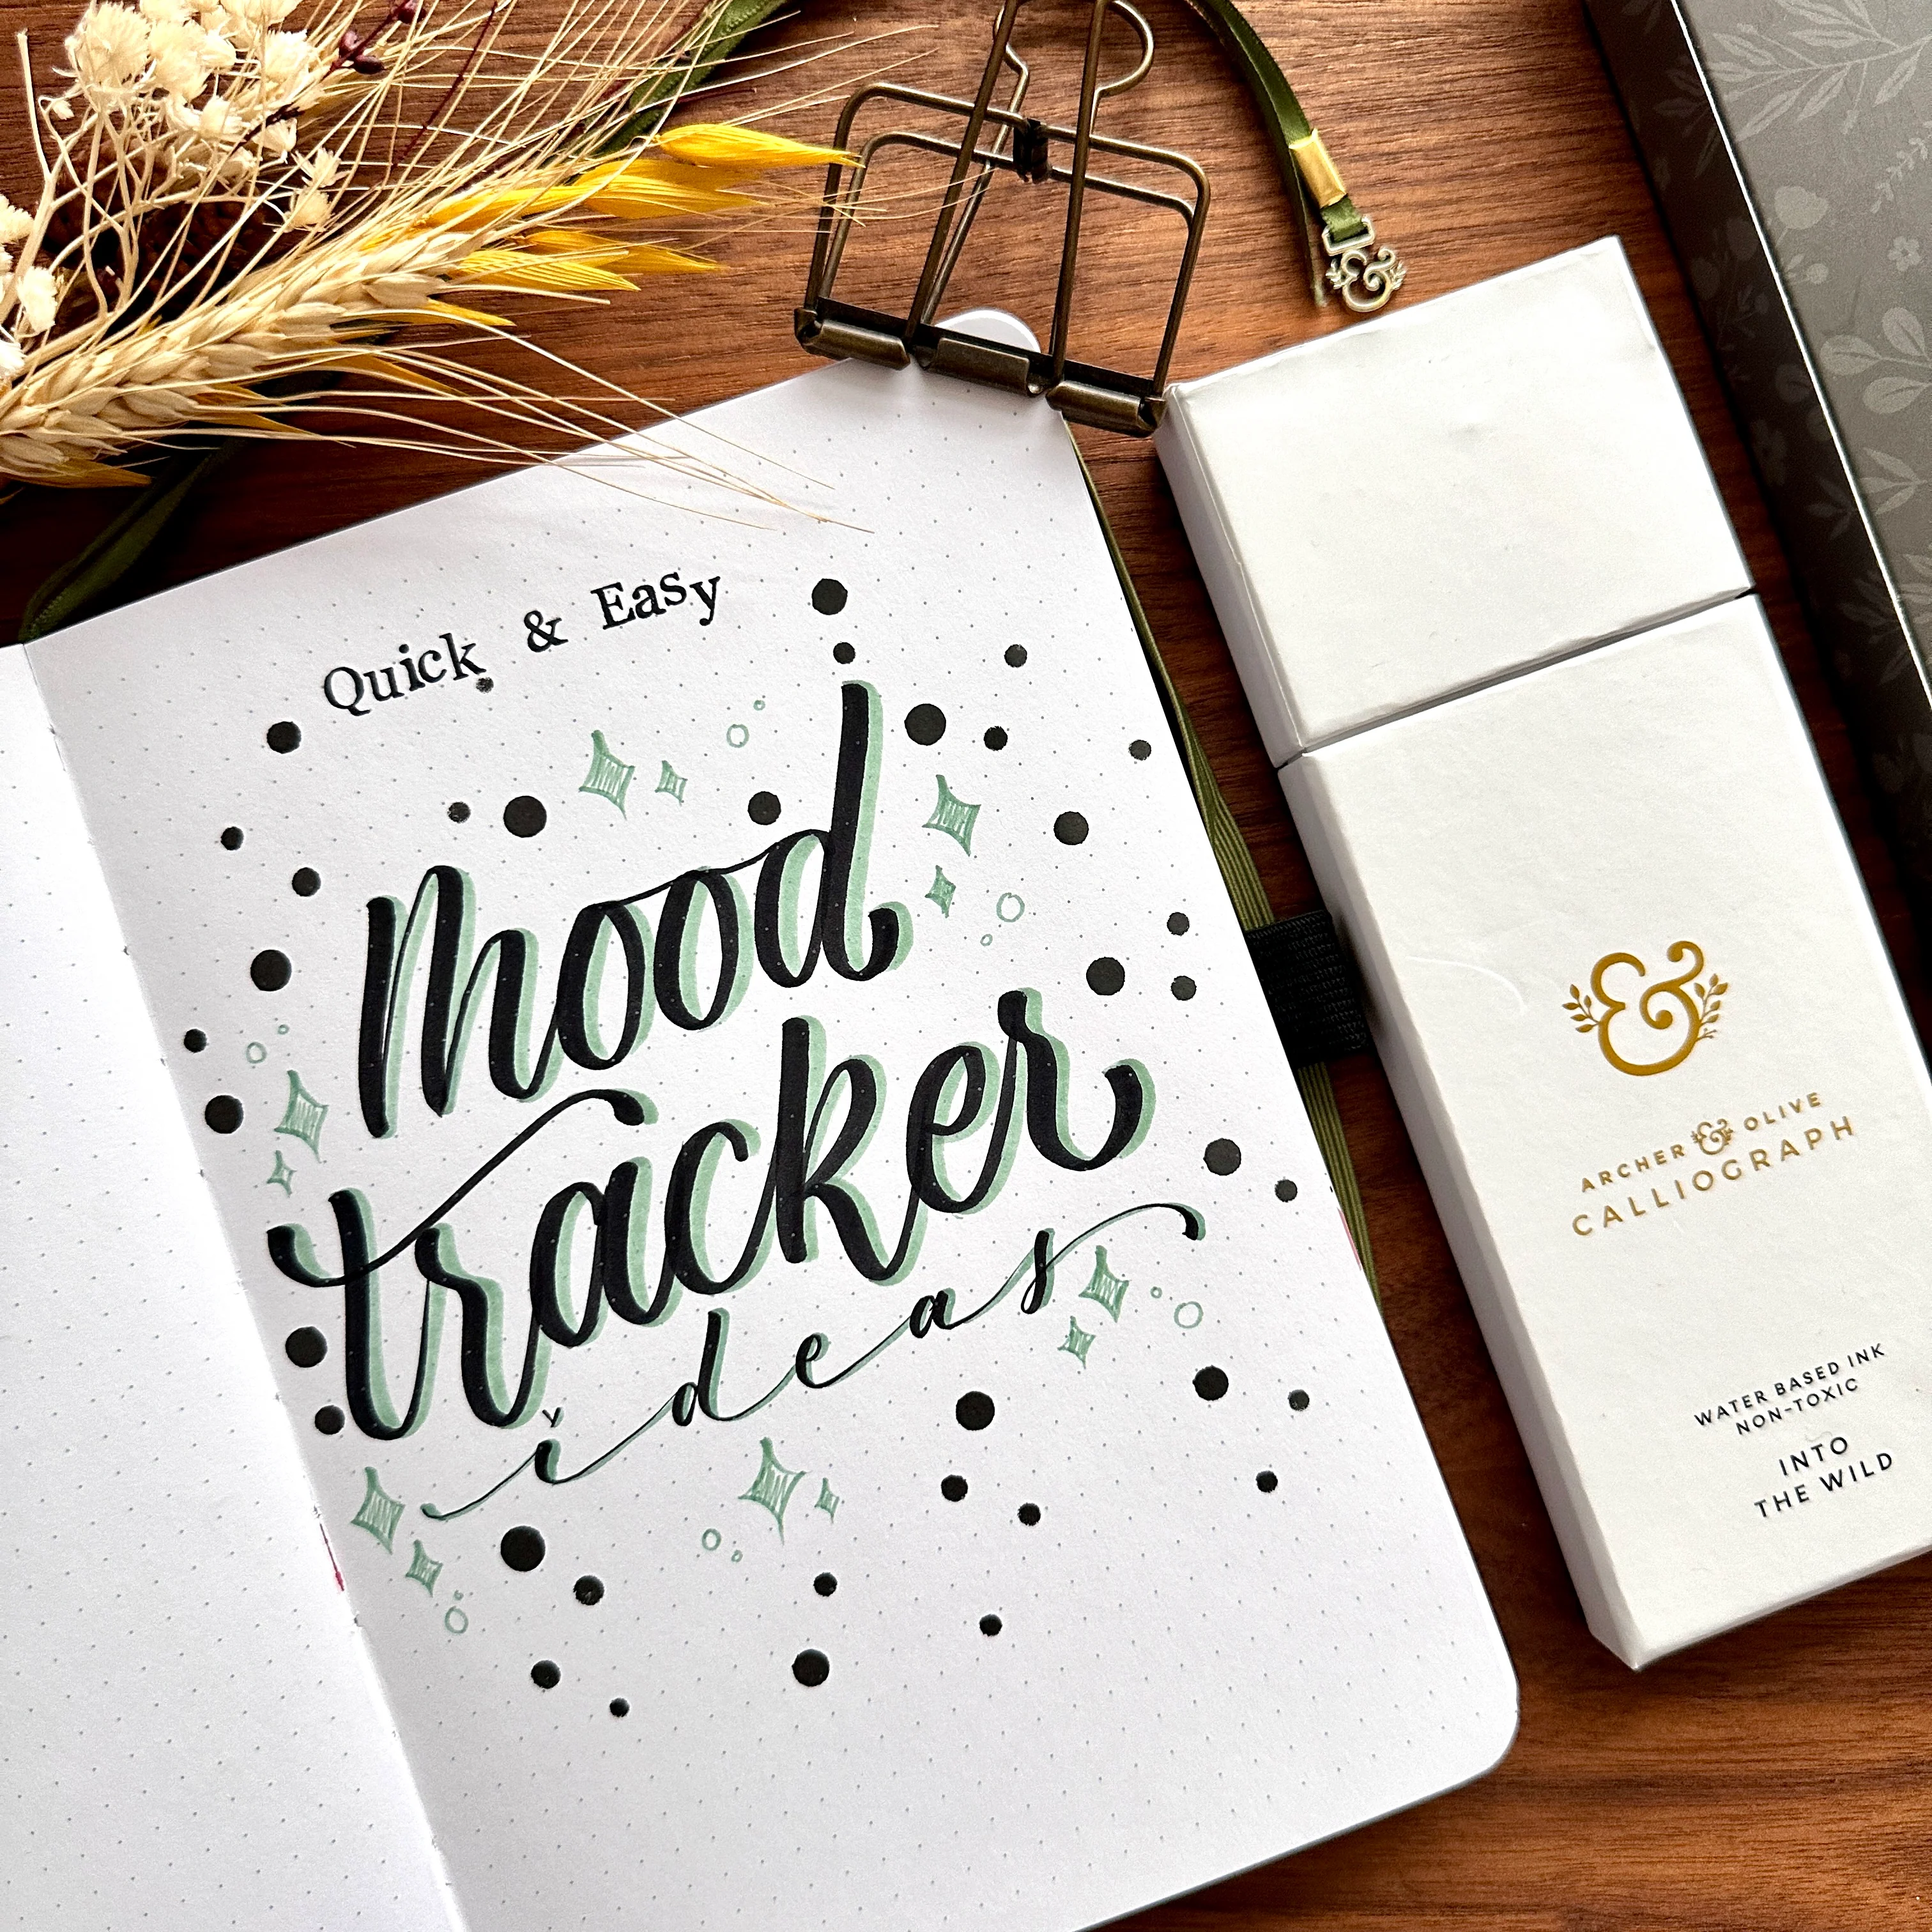 Quick & Easy
mood
tracker
ideas
&
&
ARCHER & OLIVE
CALLIOGRAPH
WATER BASED INK
NON-TOXIC
INTO
THE WILD